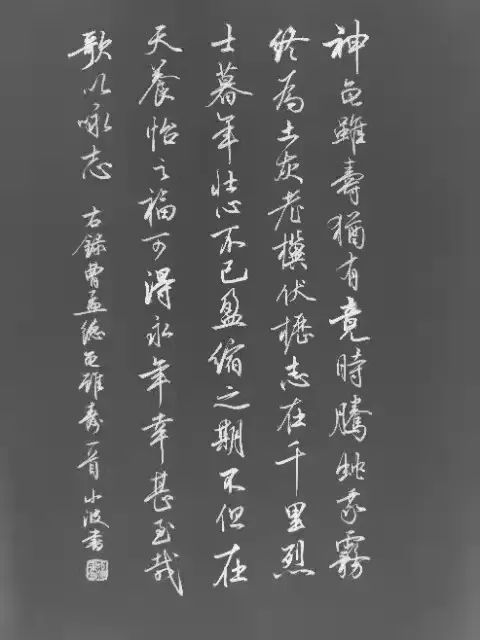 神龜雖壽猶有竟時騰蛇乘霧
終為土灰老驥伏櫪志在千里烈
士暮年壯心不已盈縮之期不但在
天養怡之福可得永年幸甚至哉
歌以咏志 右錄曹孟德龜雖壽一首 小波書